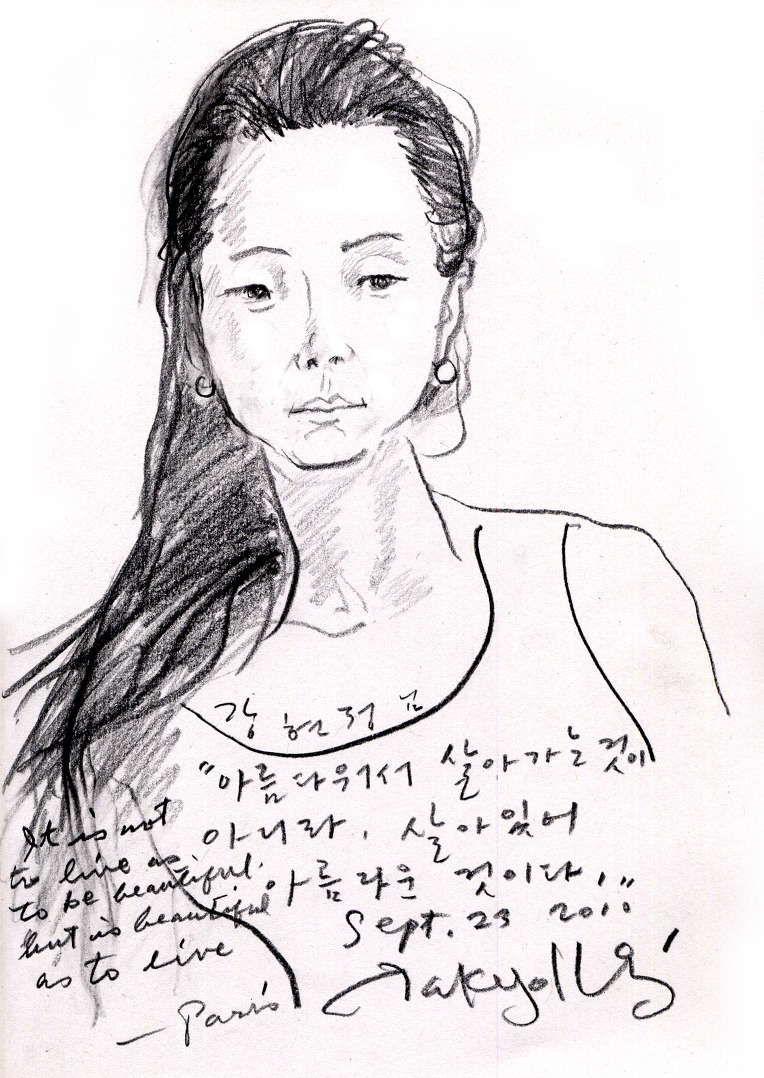 강현정님
"아름다워서 살아가는 것이
아니라, 살아있어
아름다운 것이다."
Sept. 23 2010
It is not
to live as
to be beautiful.
but is beautiful
as to live
— Paris